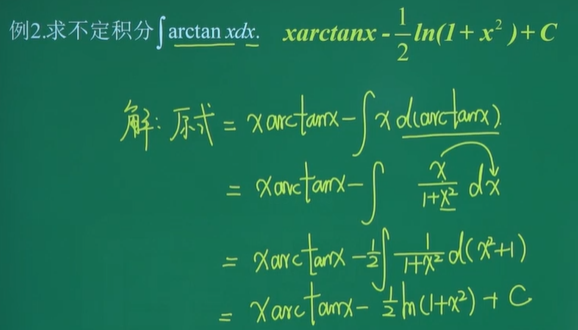 例2.求不定积分∫arctan xdx. xarctanx - 1/2 ln(1+x²)+C
解:原式 = xarctanx - ∫x d(arctanx)
= xarctanx - ∫ x/(1+x²) dx
= xarctanx - 1/2 ∫ 1/(1+x²) d(x²+1)
= xarctanx - 1/2 ln(1+x²) + C